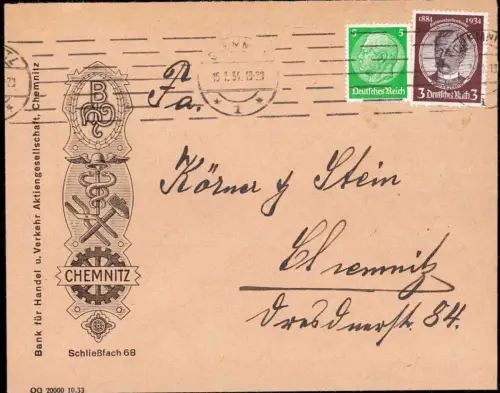 5 5
Deutsches Reich
1884 1934
3 Deutsches Reich 3
15.7.34.
1
Fa.
Körner & Stein
Chemnitz
Dresdnerstr. 84.
Bank für Handel u. Verkehr Aktiengesellschaft, Chemnitz
CHEMNITZ
Schließfach 68
OG 20000 10.33